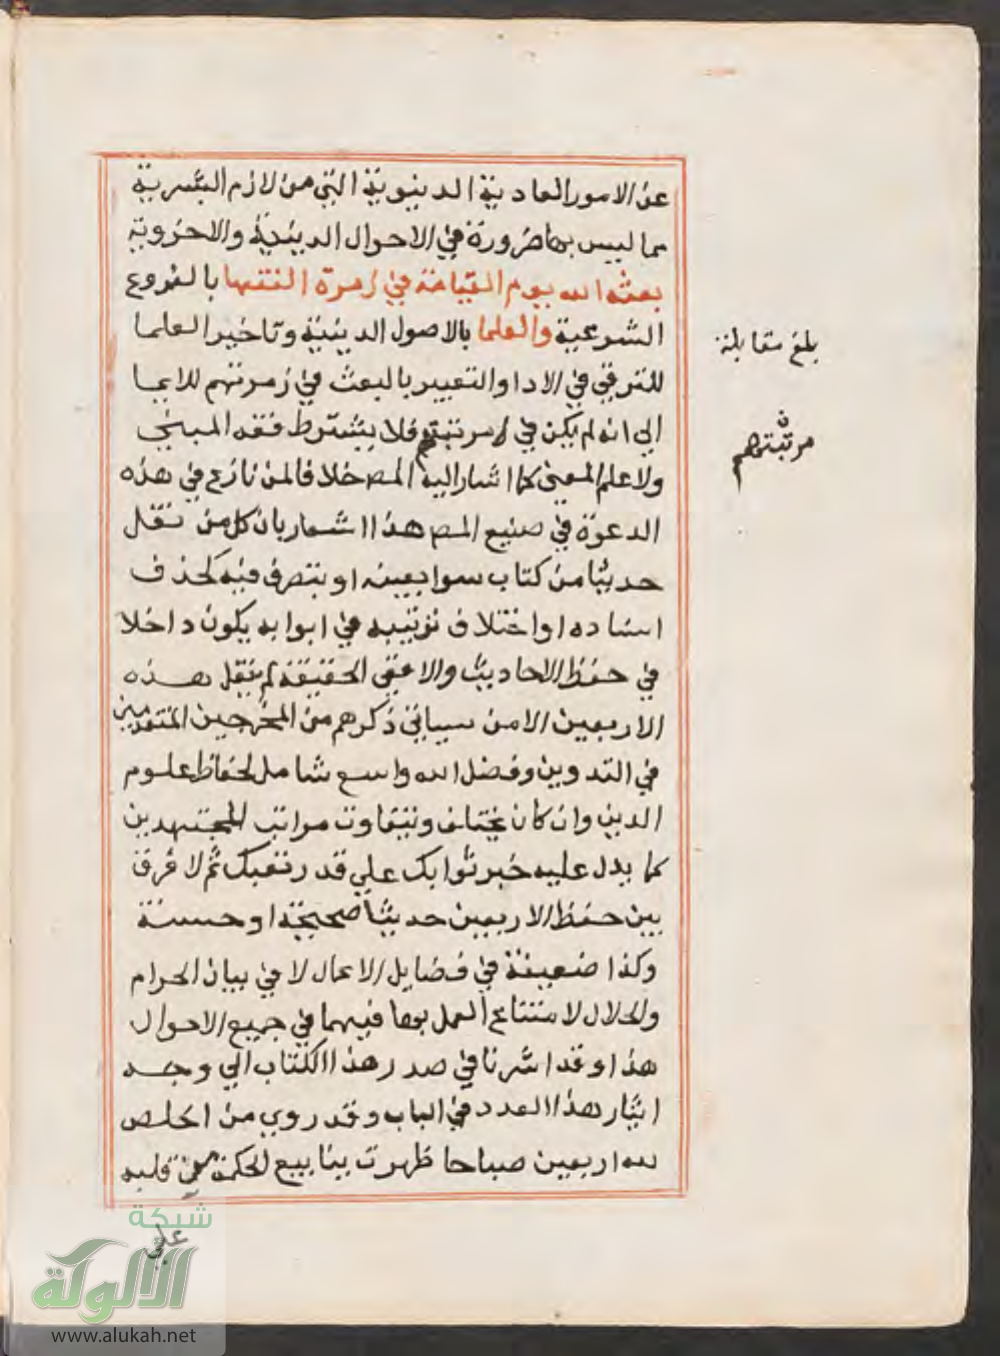 عن الامور العادية الدنيوية التي من لازم البشرية
مما ليس بها ضرورة في الاحوال الدينية والاخروية
بعثه الله يوم القيامة في زمرة الفقها بالفروع
الشرعية والعلما بالاصول الدينية وتاخير العلما
للترقي في الاداو والتعبير بالبعث في زمرتهم للايما
الي انه لم يكن في مرتبتهم فلا يشترط فقه المبني
ولا علم المعني كما اشار اليه المص خلافا لمن نازع في هذه
الدعوة في صنيع المص هذا اشعار بان كل من نقل
حديثا من كتاب سوا بعينه او بتصرف فيه كحذف
اسناده او اختلاف ترتيبه في ابوابه يكون داخلا
في حفظ الاحاديث والا ففي الحقيقة لم ينقل هذه
الاربعين الا من سياتي ذكرهم من المخرجين المتقدمين
في التدوين وفضل الله واسع شامل لحفاظ علوم
الدين وان كان يختلف ويتفاوت مراتب المجتهدين
كما يدل عليه خبر ثوابك علي قدر تعبك ثم لا فرق
بين حفظ الاربعين حديثا صحيحة او حسنة
وكذا ضعيفة في فضايل الاعمال لا في بيان الحرام
والحلال لامتناع العمل بها فيهما في جميع الاحوال
هذا وقد اشرنا في صدر هذا الكتاب الي وجه
ايثار هذا العدد في الباب وقد روي من اخلص
لله اربعين صباحا ظهرت ينابيع الحكمة من قلبه
علي
بلغ مقابلة
مرتبتهم
شبكة
الألوكة
www.alukah.net